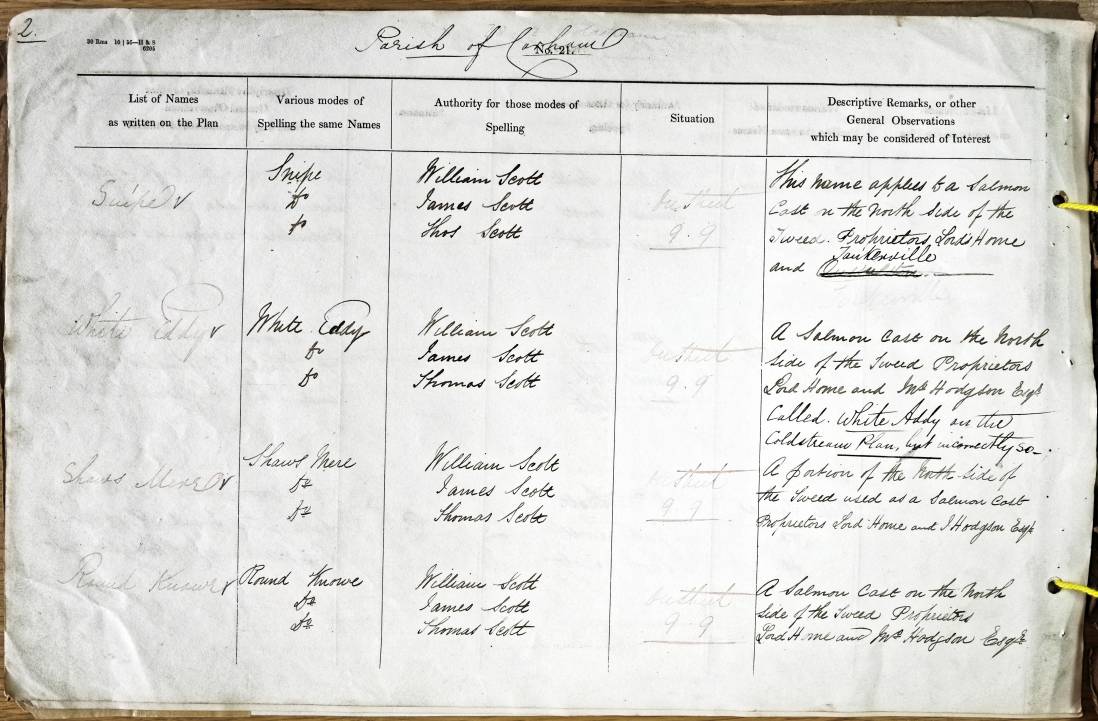 2.
20 Rms 10 | 55—H & S
6205
Parish of Carham
No. 21.
List of Names
as written on the Plan
Various modes of
Spelling the same Names
Authority for those modes of
Spelling
Situation
Descriptive Remarks, or other
General Observations
which may be considered of Interest
Snipe
Snipe
do
do
William Scott
James Scott
Thos Scott
on sheet
9.9
This name applies to a Salmon
Cast on the North Side of the
Tweed. Proprietors Lords Home
Tankerville
and
White Eddy
White Eddy
do
do
William Scott
James Scott
Thomas Scott
on sheet
9.9
A Salmon Cast on the North
side of the Tweed Proprietors
Lord Home and Mr Hodgson Esqr
Called White Addy on the
Coldstream Plan, but incorrectly so.
Shaws Mere
Shaws Mere
do
do
William Scott
James Scott
Thomas Scott
on sheet
9.9
A portion of the North side of
the Tweed used as a Salmon Cast
Proprietors Lord Home and J Hodgson Esqr
Round Knowe
Round Knowe
do
do
William Scott
James Scott
Thomas Scott
on sheet
9.9
A Salmon Cast on the North
side of the Tweed Proprietors
Lord Home and Mr Hodgson Esqre